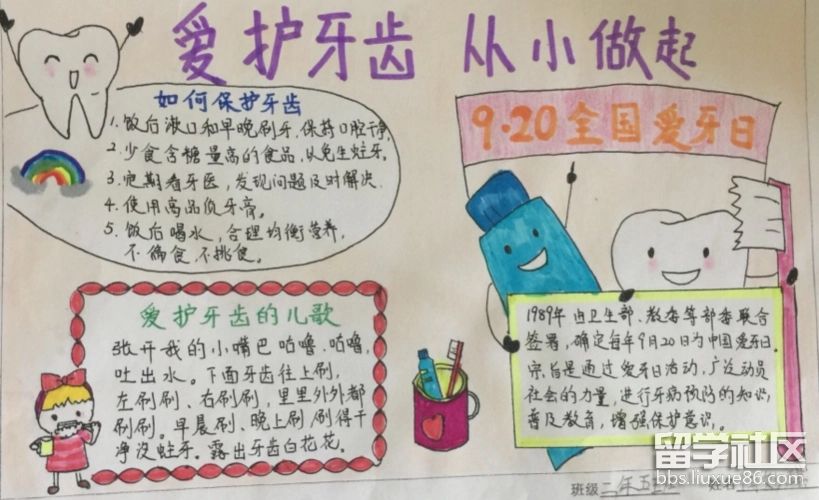 爱护牙齿 从小做起
如何保护牙齿
1. 饭后漱口和早晚刷牙,保持口腔干净.
2. 少食含糖量高的食品,以免生蛀牙.
3. 定期看牙医,发现问题及时解决.
4. 使用高品质牙膏。
5. 饭后喝水,合理均衡营养,
不偏食.不挑食.
9·20全国爱牙日
爱护牙齿的儿歌
张开我的小嘴巴咕噜.咕噜,
吐出水。下面牙齿往上刷,
左刷刷、右刷刷,里里外外都
刷刷。早晨刷、晚上刷刷得干
净没蛀牙。露出牙齿白花花。
1989年由卫生部、教委等部委联合
签署,确定每年9月20日为中国爱牙日.
宗旨是通过爱牙日活动,广泛动员
社会的力量,进行牙病预防的知识
普及教育,增强保护意识。
班级
留学社区
bbs.liuxue86.com